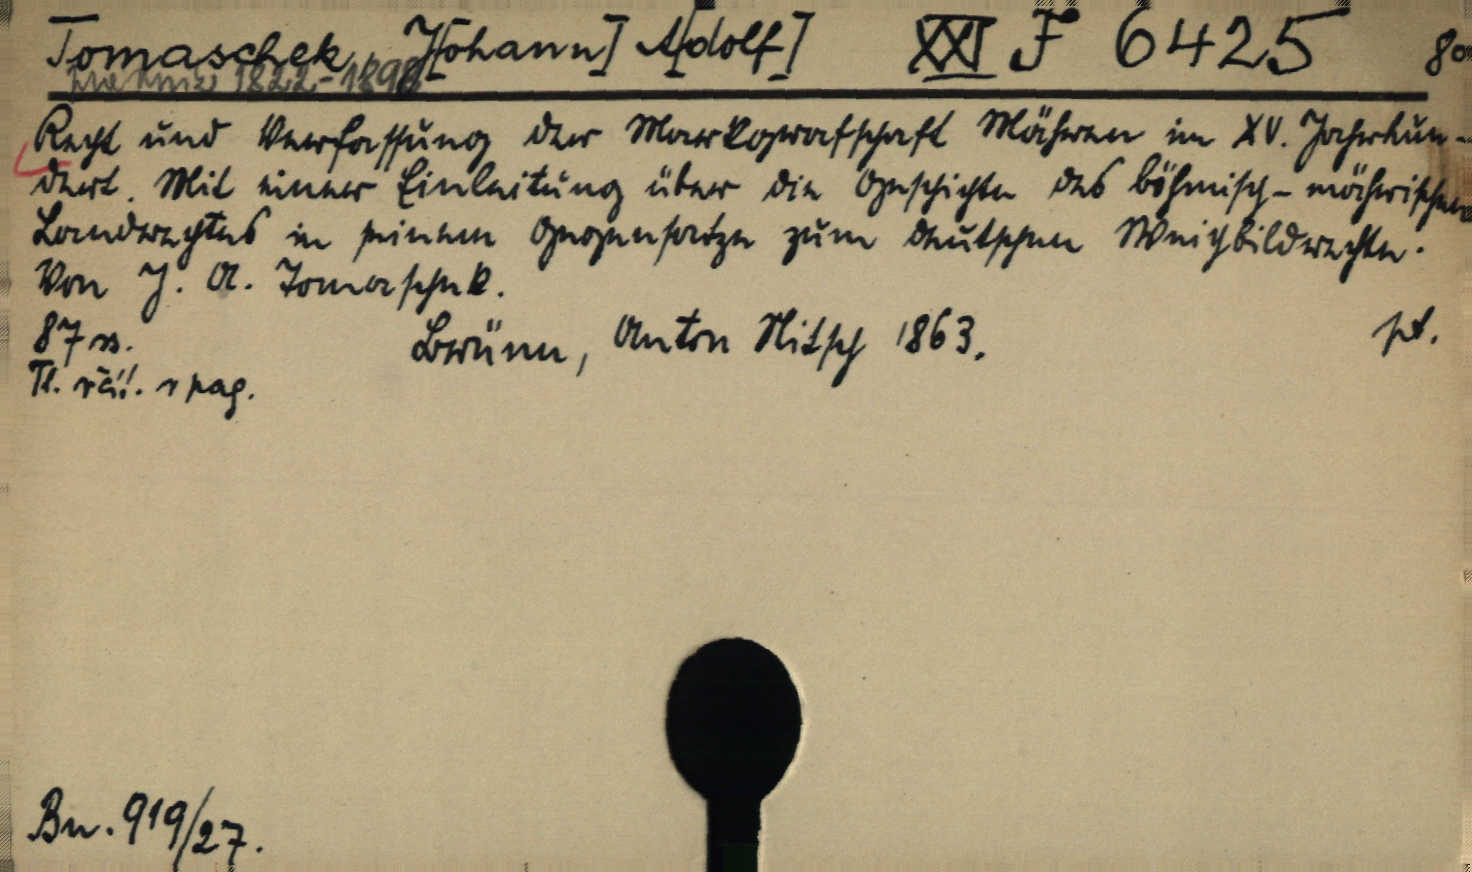 Tomaschek, J[ohann] A[dolf] XXI F 6425 8°
právník 1822-1898
Recht und Verfassung der Markgrafschaft Mähren im XV. Jahrhun-
dert. Mit einer Einleitung über die Geschichte des böhmisch-mährischen
Landrechtes in seinem Gegensatze zum deutschen Weichbildrechte.
Von J. A. Tomaschek.
87 ss. Brünn, Anton Nitsch 1863. pt.
Tl. včít. v pag.
Bn. 919/27.